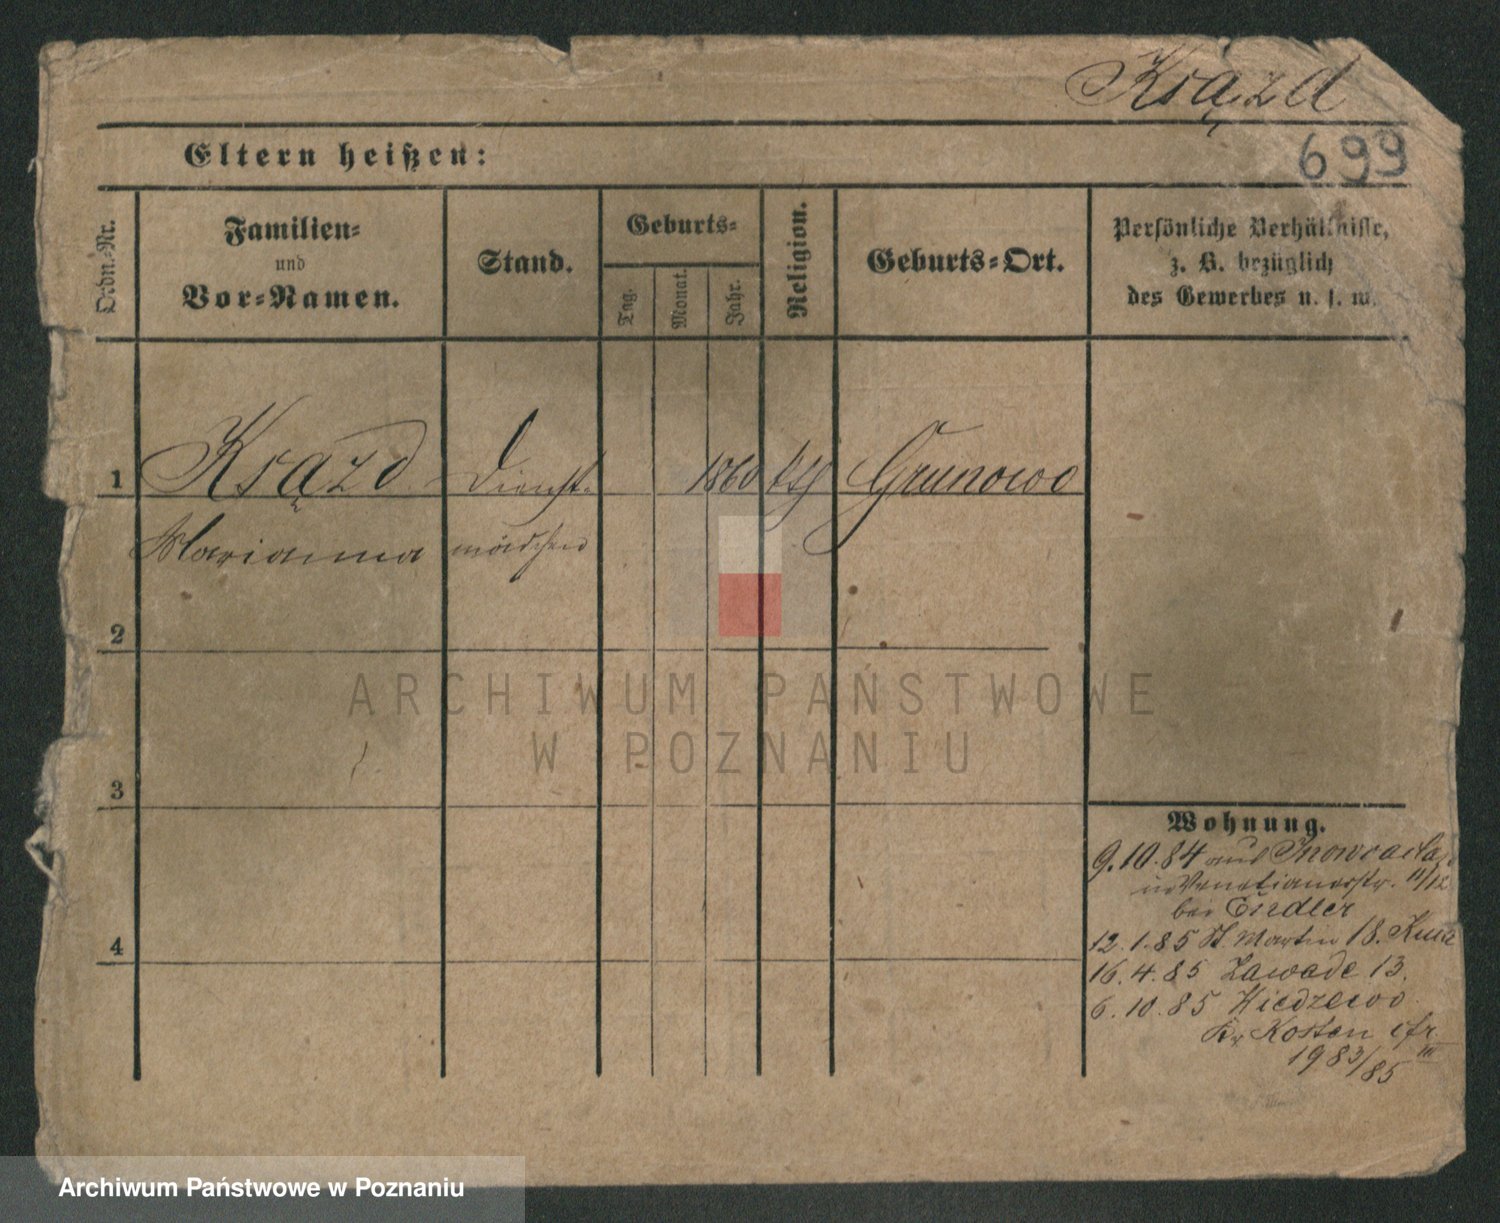 Ksążd
Eltern heißen:
699
Ordn.-Nr.
Familien-
und
Vor-Namen.
Stand.
Geburts-
Tag.
Monat.
Jahr.
Religion.
Geburts-Ort.
Persönliche Verhältnisse,
z. B. bezüglich
des Gewerbes u. s. w.
1 Ksązd Dienst- 1860 kth Grunowo
Marianna mädchen
2
3
4
Wohnung.
9.10.84 aus Inowraclaw
in Venetianerstr. 11/12
bei
12.1.85 St. Martin 18.
16.4.85 Zawade 13.
6.10.85
Kr Kosten cfr.
1983/85 III
ARCHIWUM PAŃSTWOWE
W POZNANIU
Archiwum Państwowe w Poznaniu